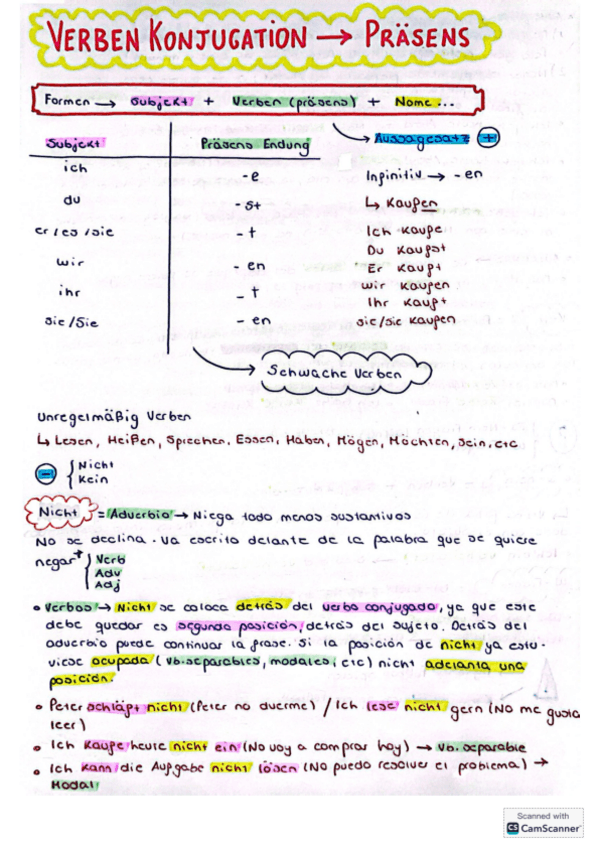 VERBEN KONJUGATION → PRÄSENS
Formen → Subjekt + Verben (präsens) + Nome...
Aussagesatz +
Subjekt Präsens Endung
ich -e Infinitiv → -en
du -st ↳ Kaufen
er/es/sie -t Ich Kaufe
Du Kaufst
wir -en Er Kauft
wir Kaufen
ihr -t Ihr Kauft
sie/Sie -en sie/sie Kaufen
Schwache Verben
Unregelmäßig Verben
↳ Lesen, Heißen, Sprechen, Essen, Haben, Mögen, Möchten, Sein, etc
- { Nicht
Kein
Nicht = Adverbio → Niega todo menos sustantivos
No se declina. Va escrito delante de la palabra que se quiere
negar → } Verb
Adv
Adj
• Verbos → Nicht se coloca detrás del verbo conjugado, ya que este
debe quedar es segunda posición, detrás del sujeto. Detrás del
adverbio puede continuar la frase. Si la posición de nicht ya estu-
viese ocupada (Vb.separables, modales, etc) nicht adelanta una
posición.
• Peter schläft nicht (Peter no duerme) / Ich lese nicht gern (No me gusta
leer)
• Ich Kaufe heute nicht ein (No voy a compras hoy) → Vb. separable
• Ich Kann die Aufgabe nicht lösen (No puedo resolver el problema) →
Modal
Scanned with
CS CamScanner